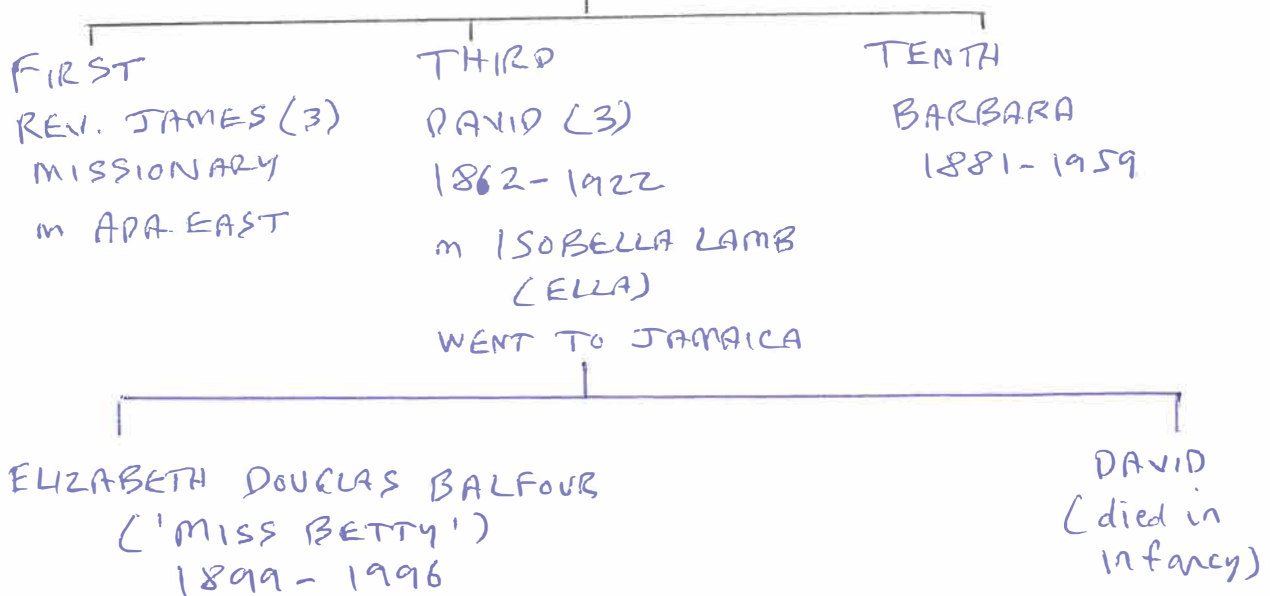 FIRST
REV. JAMES (3)
MISSIONARY
m ADA EAST
THIRD
DAVID (3)
1862 - 1922
m ISOBELLA LAMB
(ELLA)
WENT TO JAMAICA
TENTH
BARBARA
1881 - 1959
ELIZABETH DOUGLAS BALFOUR
('MISS BETTY')
1899 - 1996
DAVID
(died in
infancy)